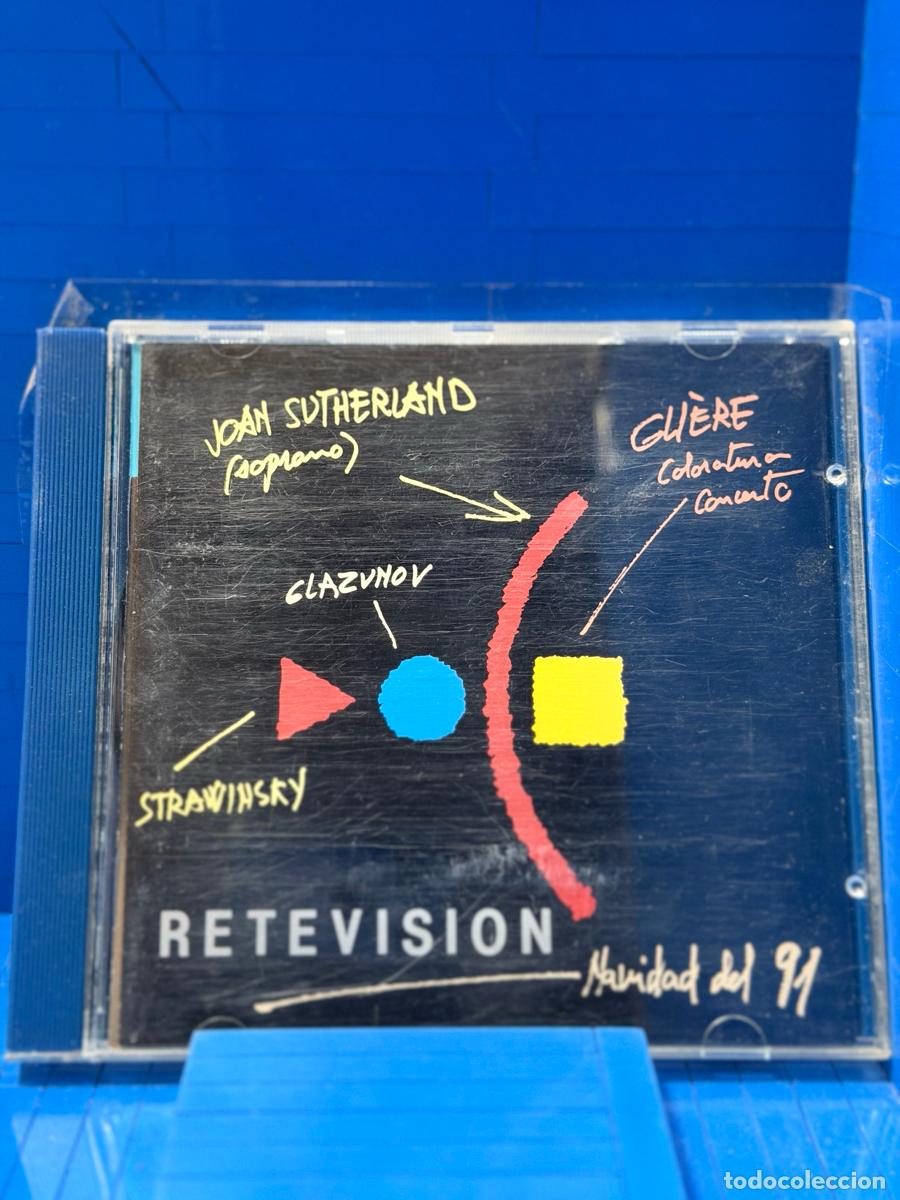 JOAN SUTHERLAND
(soprano)
GLIÈRE
Coloratura
Concerto
GLAZUNOV
STRAWINSKY
RETEVISION
Navidad del 91
todocoleccion